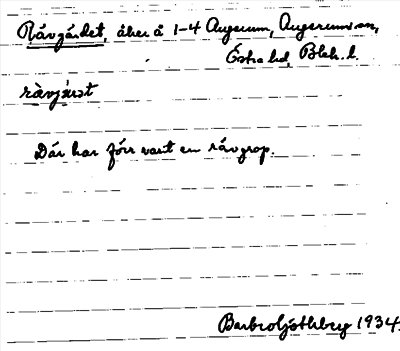 Rävgärdet, åker å 1-4 Augerum, Augerums sn,
Östra hd, Blek. l.
rävjärst
Där har förr varit en rävgrop.
1934.